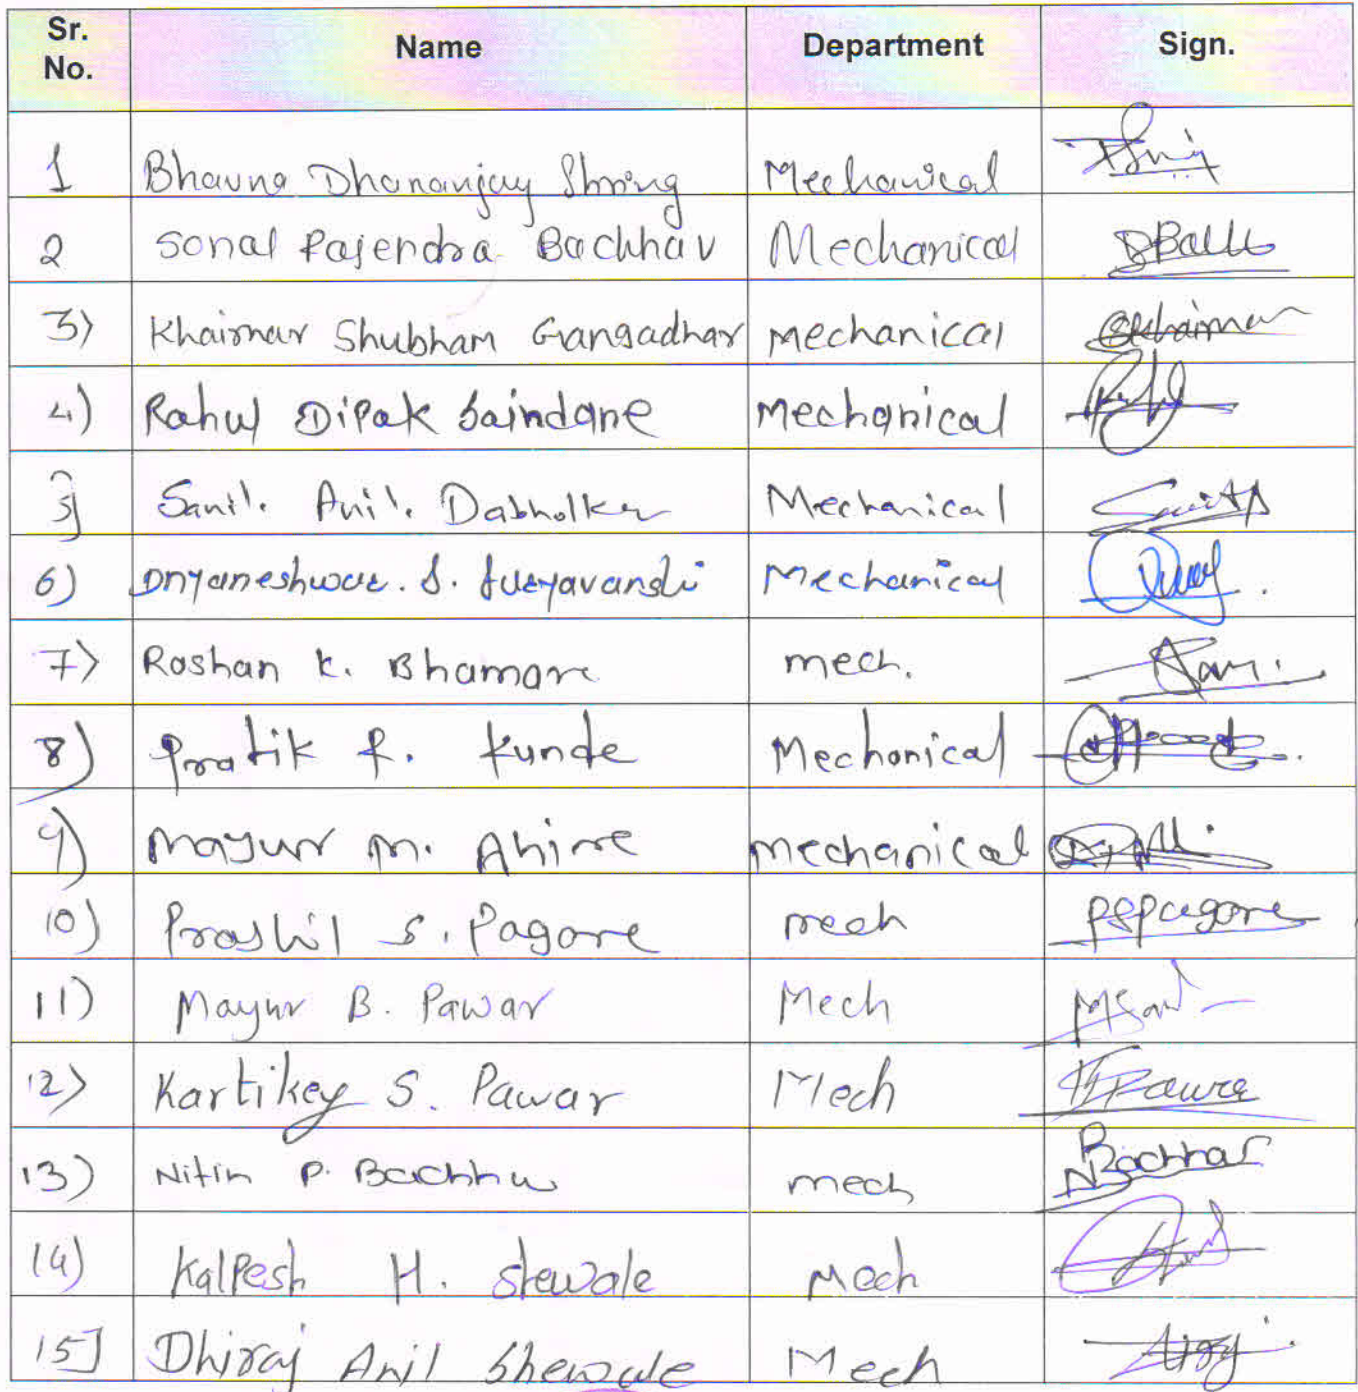 Sr. No. Name Department Sign.
1 Bhavna Dhananjay Mechanical
2 Sonal Rajendra Bachhav Mechanical
3) Khairnar Shubham Gangadhar Mechanical
4) Rahul Dipak Saindane Mechanical
5] Sanil. Anil. Dabholkar Mechanical
6) Dnyaneshwar. S. Suryavanshi Mechanical
7) Roshan K. Bhamare mech.
8) Pratik R. Kunde Mechanical
9) Mayur M. Ahire Mechanical
10) S. Pagare mech PSPagare
11) Mayur B. Pawar Mech
12) Kartikey S. Pawar Mech
13) Nitin P. Bachhav mech NBachhav
14) Kalpesh H. Shewale Mech
15] Dhiraj Anil Shewale Mech